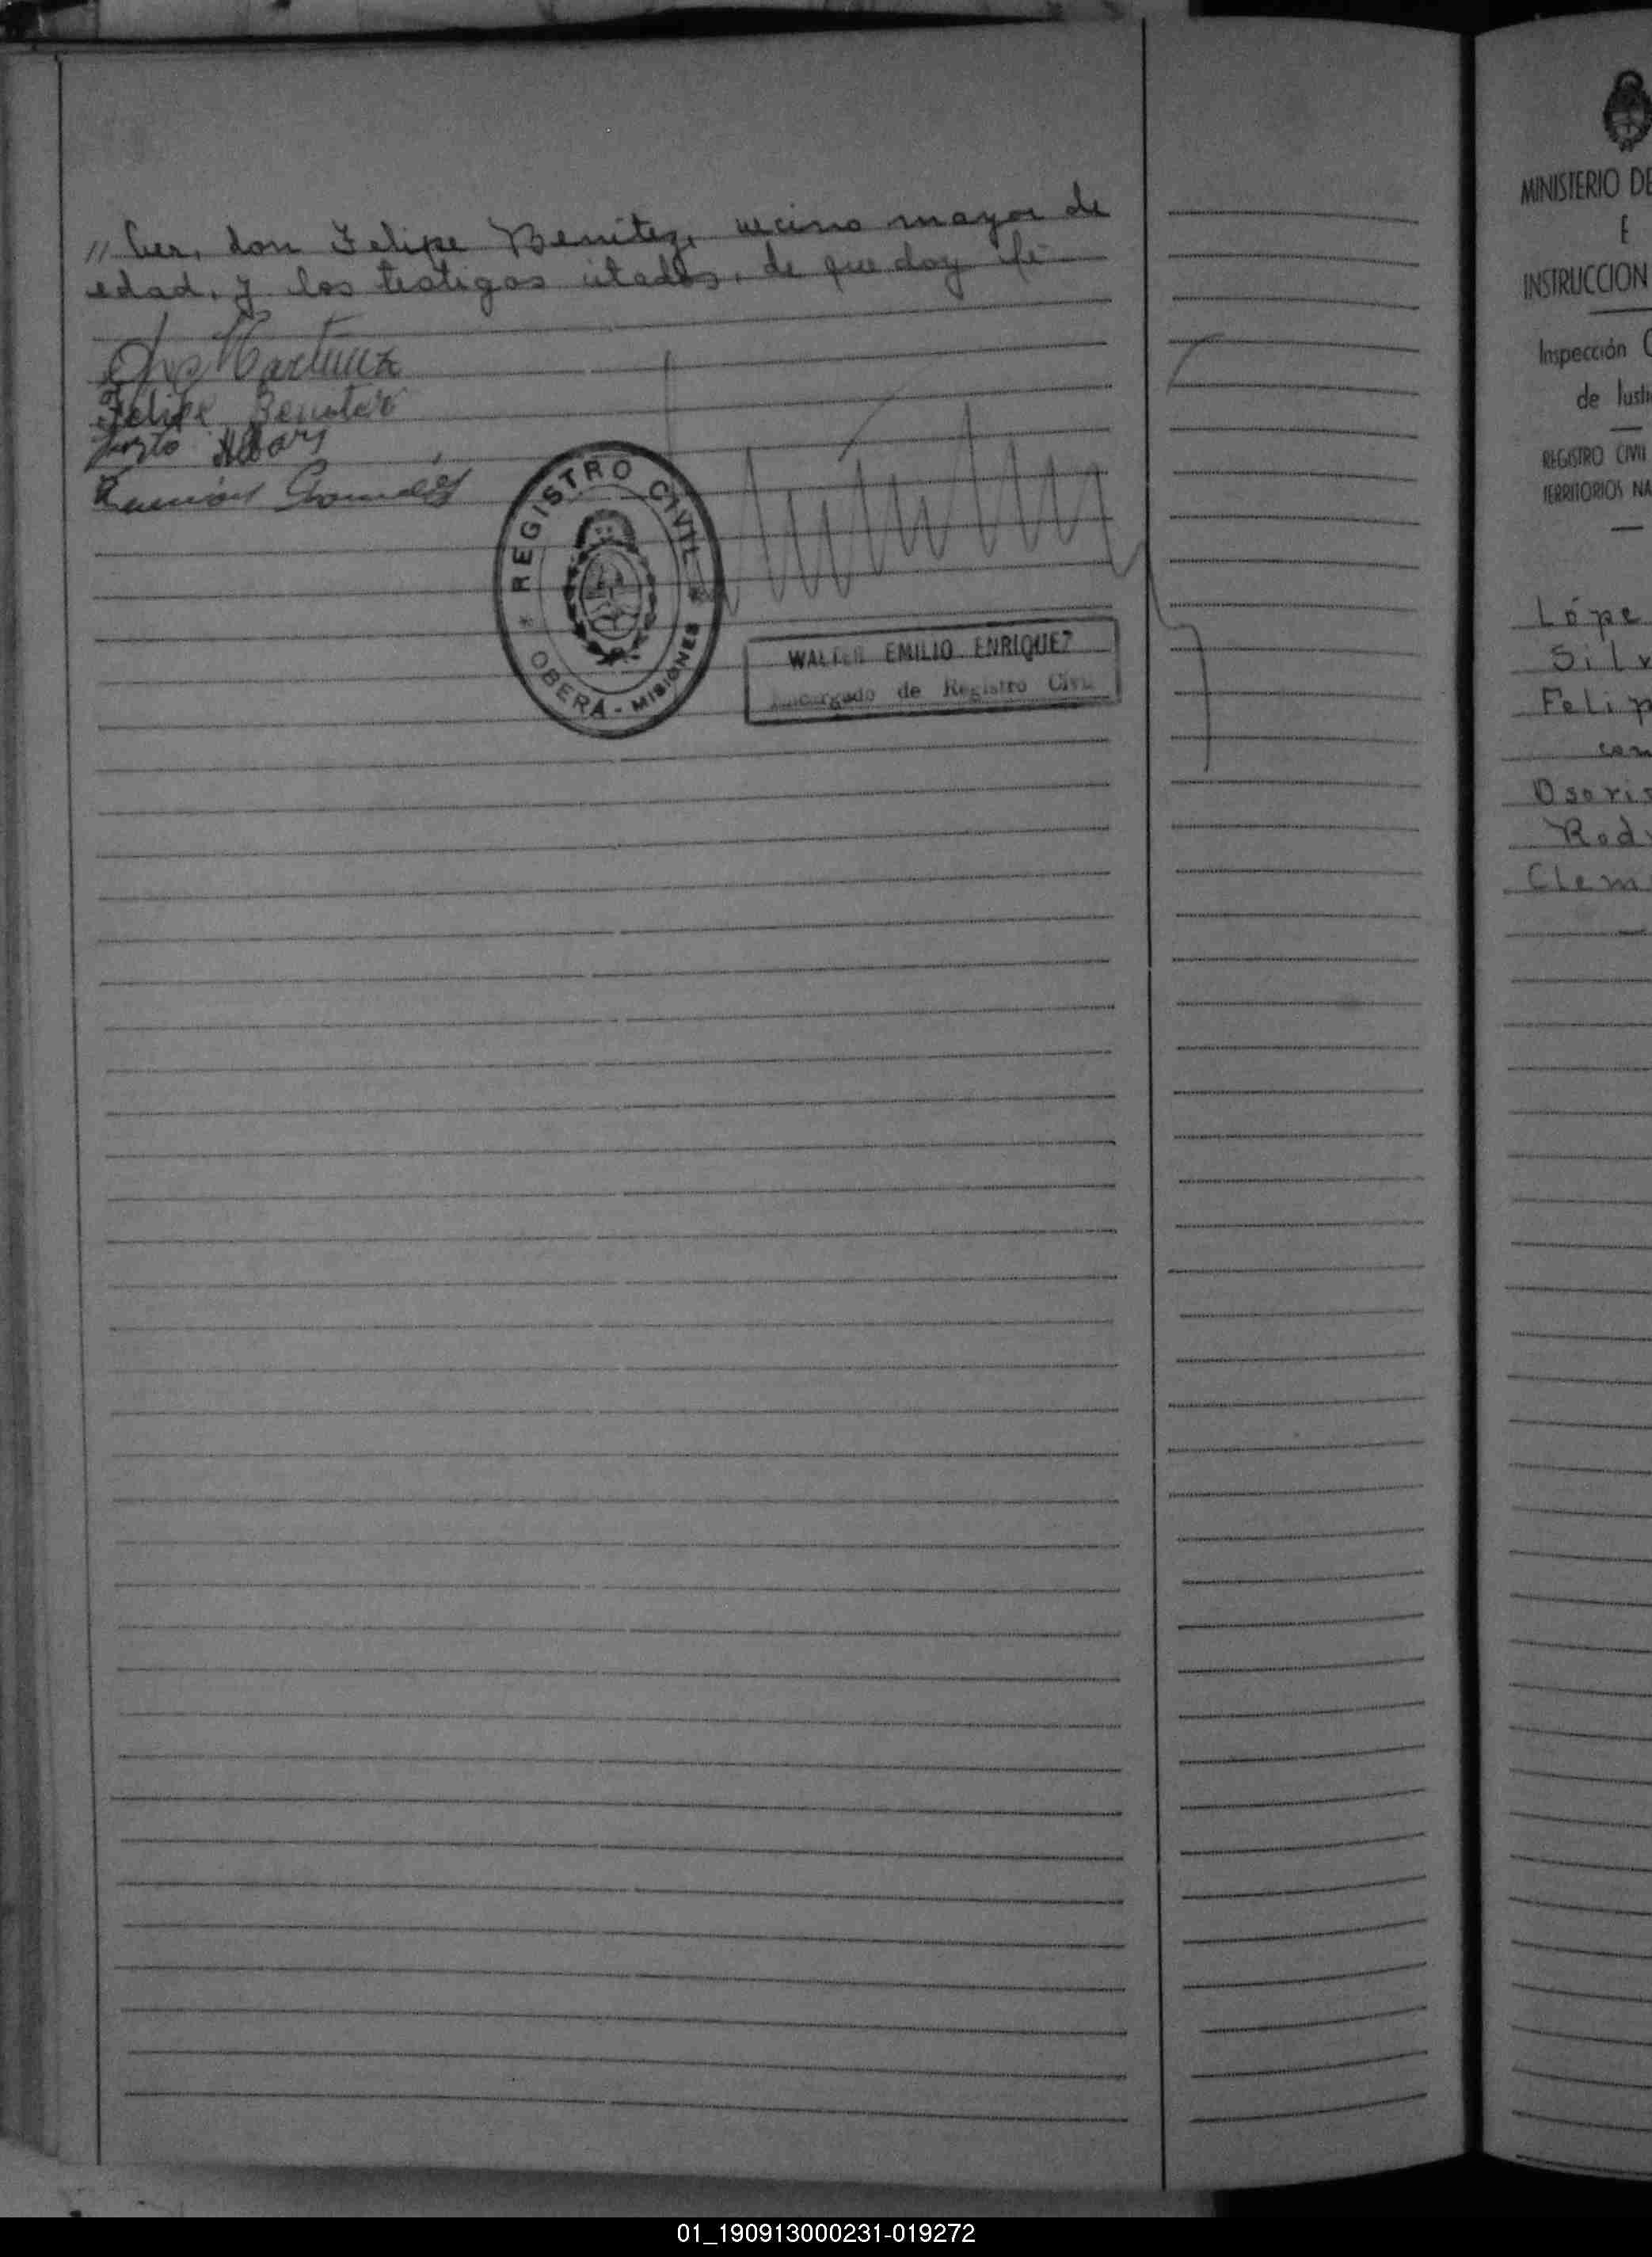 // ber, don Felipe Benitez, vecino mayor de
edad, y los testigos citados, de que doy fé
Martinez
Felipe Benitez
Justo
Ramón
REGISTRO CIVIL
* OBERA - MISIONES *
WALTER EMILIO ENRIQUEZ
Encargado de Registro Civil
MINISTERIO DE
E
INSTRUCCION
Inspección G
de Justi
REGISTRO CIVIL
TERRITORIOS NA
Lópe
Silv
Felip
con
Osoris
Rod
Clem
01_190913000231-019272